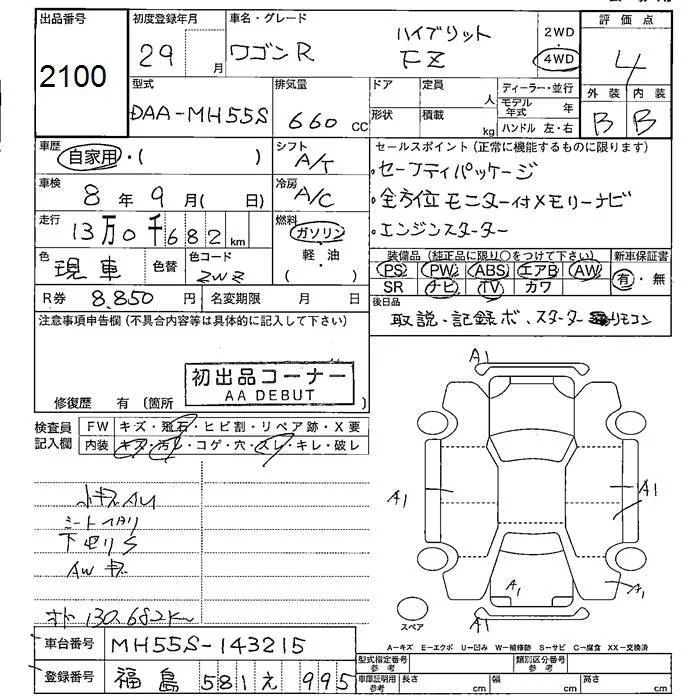 出品番号 初度登録年月 車名・グレード 評価点
2100 29 月 ワゴンR ハイブリット FZ 2WD 4WD 4
型式 排気量 ドア 定員 人 ディーラー・並行 外装 内装
DAA-MH55S 660 CC 形状 積載 kg モデル年式 年 B B
ハンドル 左・右
車歴 自家用・( ) シフト A/T セールスポイント (正常に機能するものに限ります)
・セーフティパッケージ
車検 8年9月( 日) 冷房 A/C ・全方位モニター付メモリーナビ
走行 13万0千682km 燃料 ガソリン 軽・油 ( ) ・エンジンスターター
色 現車 色替 色コード ZWZ 装備品 (純正品に限り○をつけて下さい) 新車保証書
PS PW ABS エアB AW 有・無
SR ナビ TV カワ
R券 8,850円 名変期限 月 日 後日品
取説・記録ボ、スターターリモコン
注意事項申告欄 (不具合内容等は具体的に記入して下さい)
初出品コーナー
AA DEBUT
修復歴 有 (箇所
検査員記入欄 FW キズ・飛石・ヒビ割・リペア跡・X要
内装 キズ・汚レ・コゲ・穴・スレ・キレ・破レ
小キズAU
シート
下廻りS
AWキズ
130,682K
A1
A1
A1
A1
A1
A1
スペア
A-キズ E-エクボ U-凹み W-補修跡 S-サビ C-腐食 XX-交換済
車台番号 MH55S-143215
型式指定番号 参考 類別区分番号 参考
登録番号 福島 581 え 995
車庫証明用 参考 長さ cm 幅 cm 高さ cm